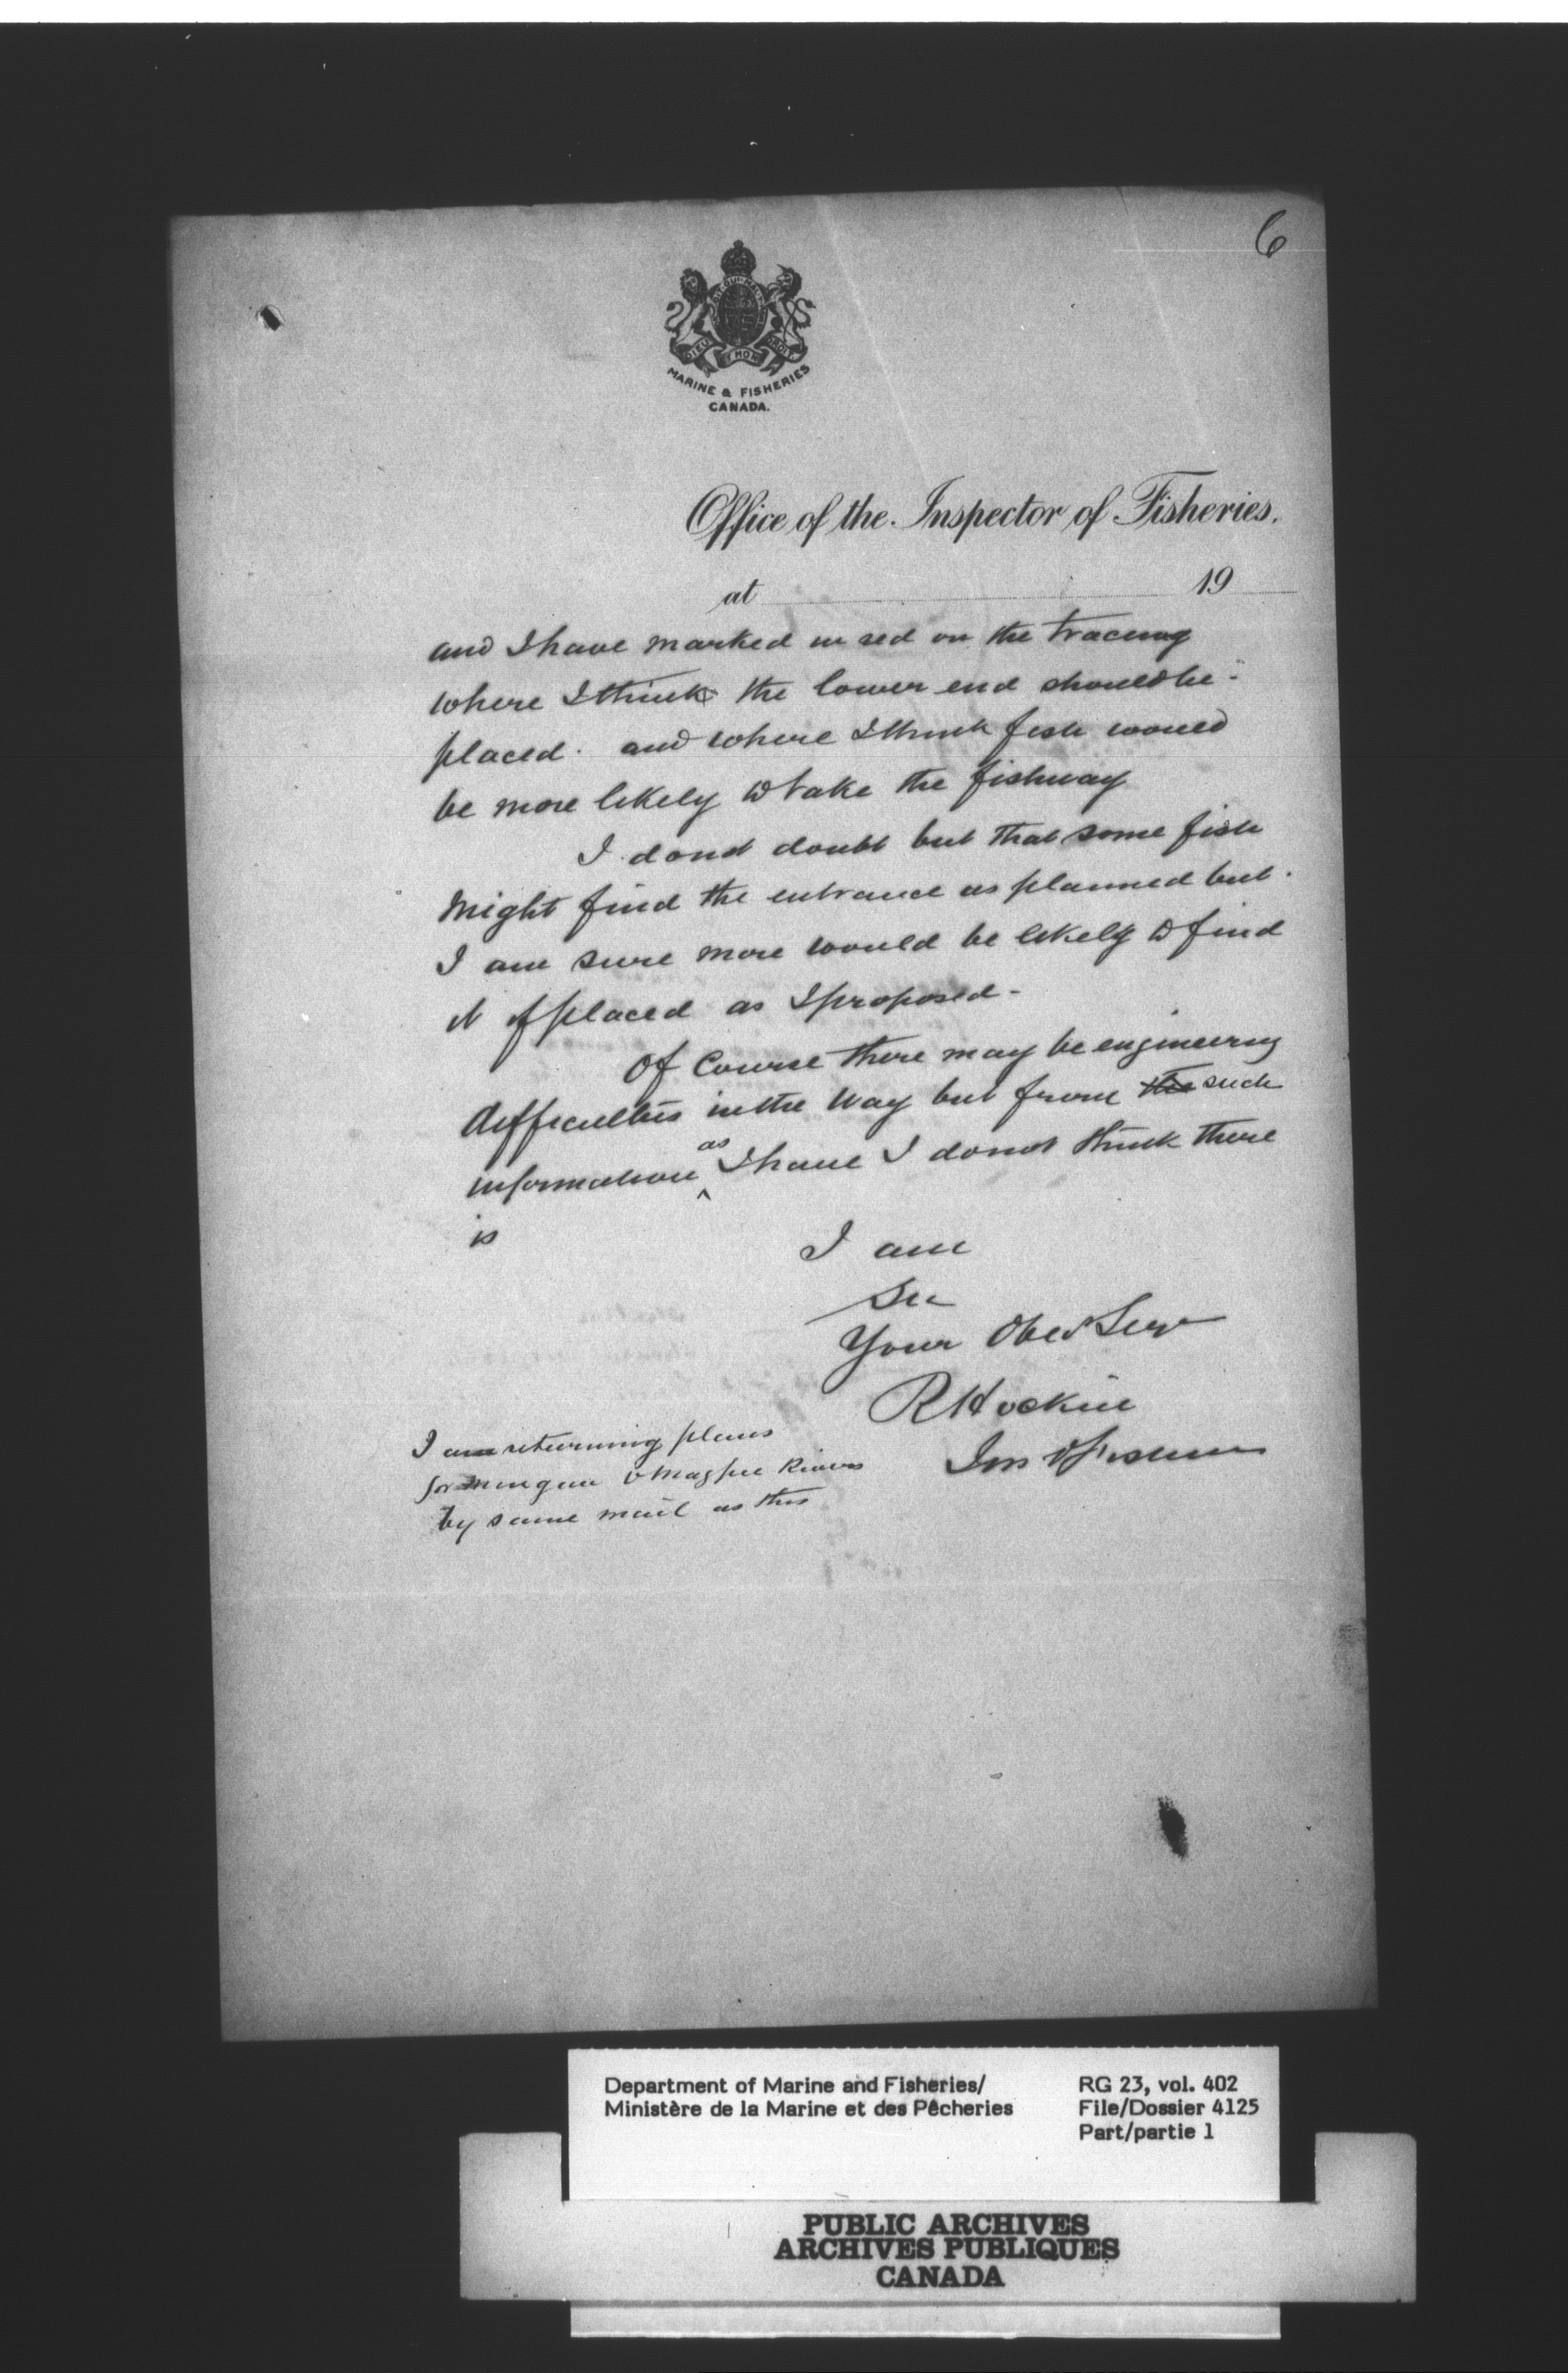 6
DIEU ET MON DROIT
MARINE & FISHERIES
CANADA.
Office of the Inspector of Fisheries.
at 19
and I have marked in red on the tracing
where I think the lower end should be
placed. and where I think fish would
be more likely to take the fishway
I do not doubt but that some fish
might find the entrance as planned but.
I am sure more would be likely to find
it if placed as I proposed -
Of Course there may be engineering
difficulties in the way but from the such
information as I have I do not think there
is
I am
Sir
Your Obed Serv
R Hockin
Ins of Fisheries
I am returning plans
for Mingan & Magpie Rivers
by same mail as this
Department of Marine and Fisheries/ RG 23, vol. 402
Ministère de la Marine et des Pêcheries File/Dossier 4125
Part/partie 1
PUBLIC ARCHIVES
ARCHIVES PUBLIQUES
CANADA